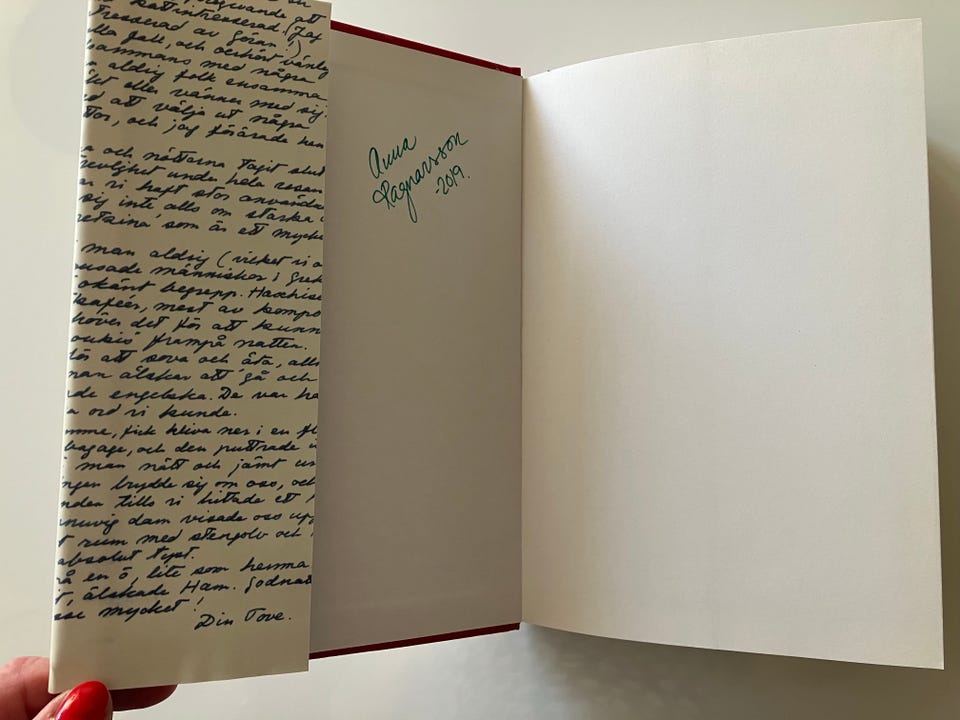 att
kattintresserad. (Jag
intresserad av Göran!)
alla fall, och oerhört vänlig
sammans med några
aldrig folk ensamma
eller vänner med sig.
att välja ut några
och jag förärade
och nätterna tagit slut
under hela resan
vi haft stor
sig inte alls om starka
retzina, som är ett mycke
man aldrig (vilket vi
människor i Grek
okänt begrepp. Haschisc
mest av
det för att kunn
frampå natten.
för att sova och äta, alls
man älskar att gå och
engelska. De var
ord vi kunde.
fick kliva ner i en
bagage, och den puttrade
man nätt och jämt
brydde sig om oss, och
tills vi hittade ett
dam visade oss upp
rum med stengolv och
absolut tyst.
på en ö, lite som hemma
älskade Ham. Godnat
mycket!
Din Tove.
Anna
Ragnarsson
-2019.